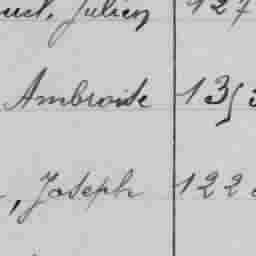 Julien 127
Ambroise 1353
, Joseph 122